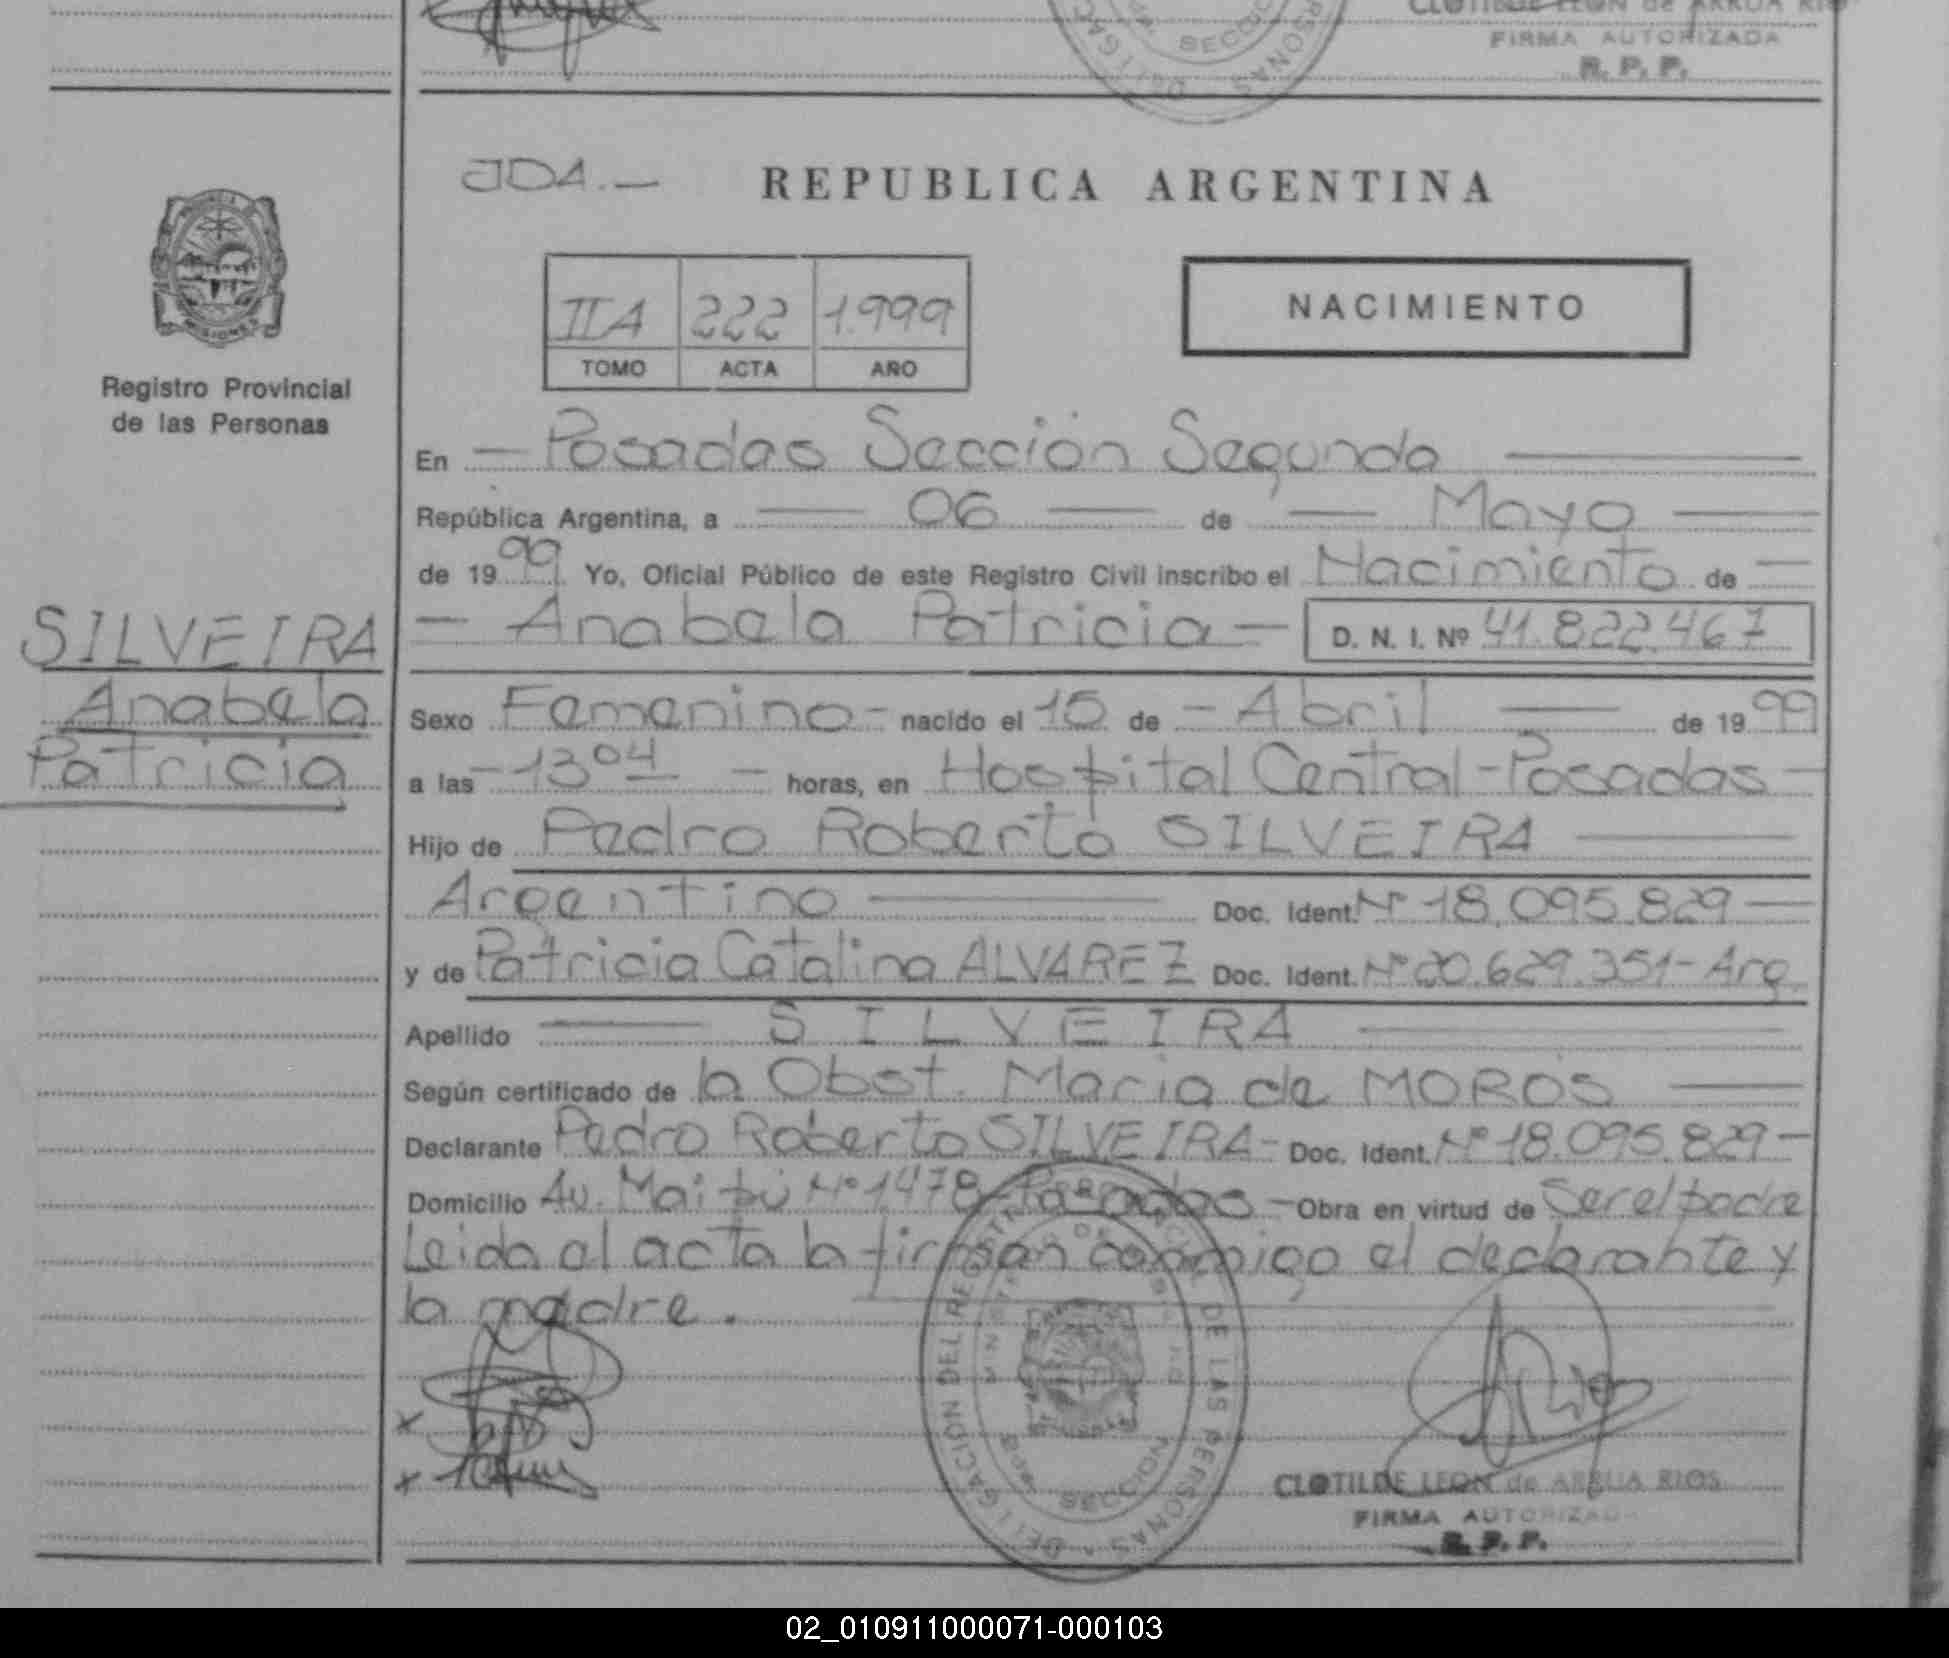 CLOTILDE LEON de ARRUA RIOS
FIRMA AUTORIZADA
R. P. P.
JDA.—
REPUBLICA ARGENTINA
PROVINCIA
MISIONES
Registro Provincial
de las Personas
IIA 222 1.999
TOMO ACTA AÑO
NACIMIENTO
En — Posadas Sección Segunda —
República Argentina, a — 06 — de — Mayo —
de 1999 Yo, Oficial Público de este Registro Civil inscribo el Nacimiento de —
— Anabela Patricia — D. N. I. Nº 41.822.467
SILVEIRA
Anabela
Patricia
Sexo Femenino - nacido el 15 de - Abril — de 1999
a las - 13 04 — horas, en Hospital Central - Posadas -
Hijo de Pedro Roberto SILVEIRA —
Argentino — Doc. Ident. Nº 18.095.829 —
y de Patricia Catalina ALVAREZ Doc. Ident. Nº 20.629.351 - Arg.
Apellido — SILVEIRA —
Según certificado de la Obst. Maria de MOROS —
Declarante Pedro Roberto SILVEIRA - Doc. Ident. Nº 18.095.829 -
Domicilio Av. Maipú Nº 1478 - Posadas - Obra en virtud de Ser el padre
Leida el acta la firman conmigo el declarante y
la madre.
DELEGACION DEL REGISTRO PROVINCIAL DE LAS PERSONAS
SECCION
CLOTILDE LEON de ARRUA RIOS
FIRMA AUTORIZADA
R. P. P.
02_010911000071-000103